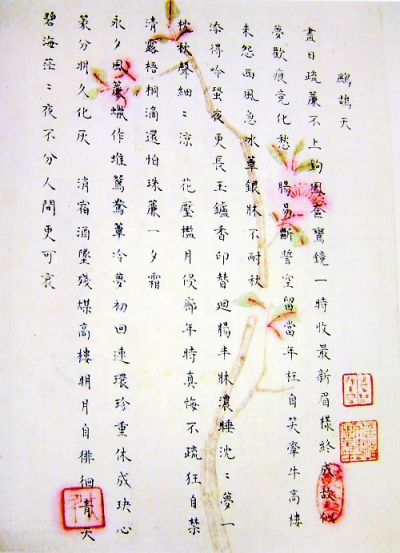 鷓鴣天
盡日疏簾不上鉤鳳奩鸞鏡一時收最新眉樣終成故似
夢歡痕竟化愁 腸易斷誓空留當年枉自笑牽牛高樓
未怨西風急冰簟銀牀不耐秋
添得吟蛩夜更長玉鑪香印替迴腸半牀濃睡沈〻夢一
枕秋聲細〻涼 花壓檻月侵廊年時真悔不疏狂自禁
清露梧桐滴還怕珠簾一夕霜
永夕風簾蠟作堆鴛鴦簟冷夢初回連環珍重休成玦心
篆分明久化灰 消宿酒墜殘煤高樓明月自徘徊青天
碧海茫〻夜不分人間更可哀